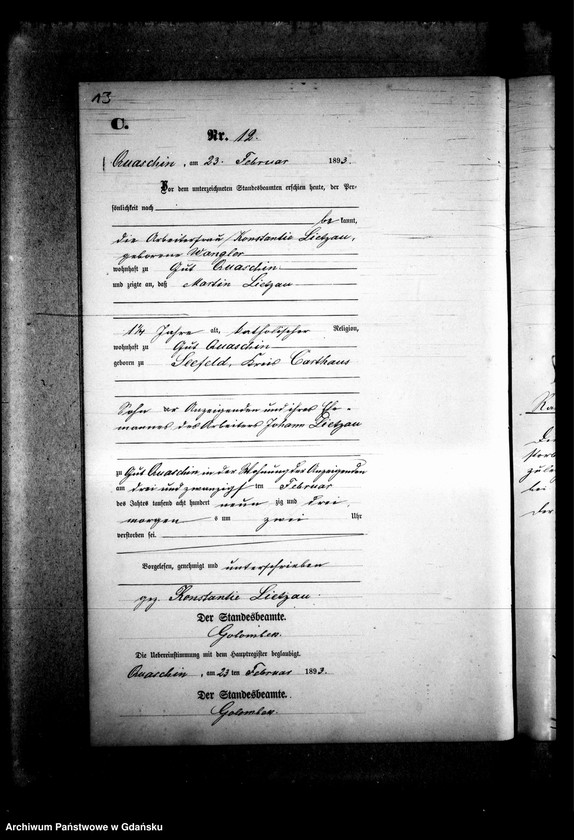 13
C.
Nr. 12.
Quaschin, am 23. Februar 1893.
Vor dem unterzeichneten Standesbeamten erschien heute, der Per-
sönlichkeit nach
be kannt,
die Arbeiterfrau Konstantie Lietzau,
geborene Wangler
wohnhaft zu Gut Quaschin
und zeigte an, daß Martin Lietzau
Jahre alt, katholischer Religion,
wohnhaft zu Gut Quaschin
geboren zu Seefeld, Kreis Carthaus
Sohn der Anzeigenden und ihres Ehe-
mannes des Arbeiters Johann Lietzau
zu Gut Quaschin in der Wohnung der Anzeigenden
am drei und zwanzigsten Februar
des Jahres tausend acht hundert neun zig und drei
morgens um zwei Uhr
verstorben sei.
Vorgelesen, genehmigt und unterschrieben
gez. Konstantie Lietzau.
Der Standesbeamte.
Golombek.
Die Uebereinstimmung mit dem Hauptregister beglaubigt.
Quaschin, am 23 ten Februar 1893.
Der Standesbeamte.
Golombek.
Archiwum Państwowe w Gdańsku